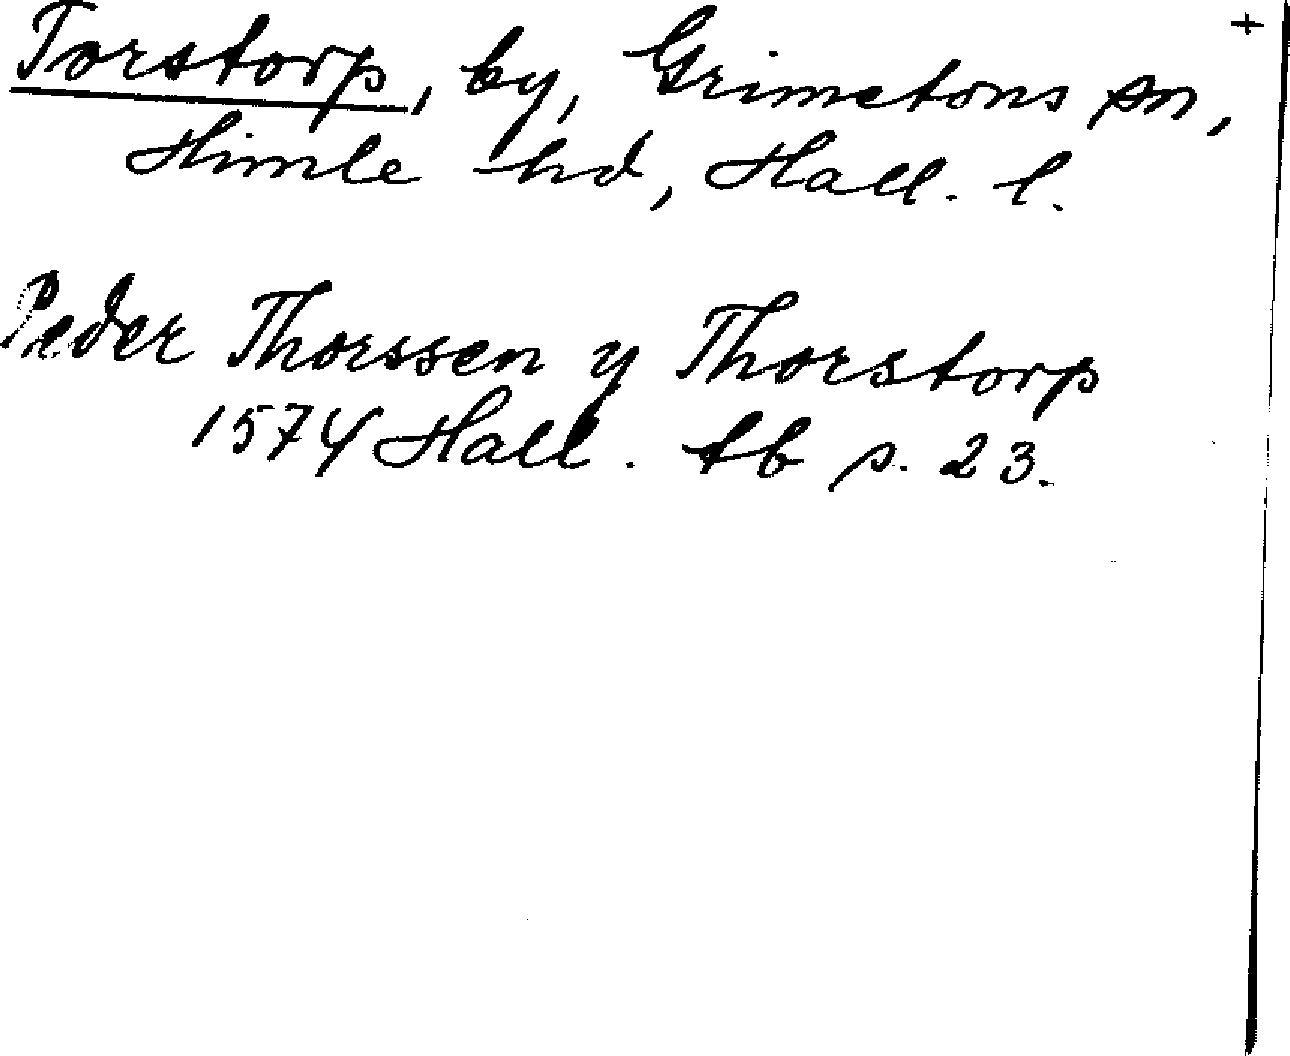 Torstorp, by, Grimetons sn, +
Himle hd, Hall. l.
Peder Thorssen y Thorstorp
1574 Hall. tb s. 23.